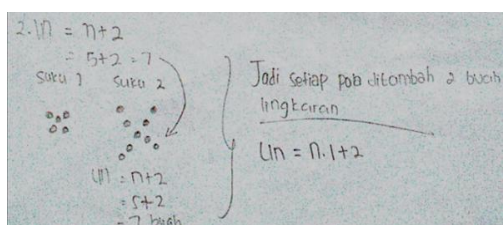 2. Un = n+2
= 5+2 = 7
Suku 1 Suku 2
Un = n+2
= 5+2
= 7 buah
Jadi setiap pola ditambah 2 buah
lingkaran
Un = n.1+2